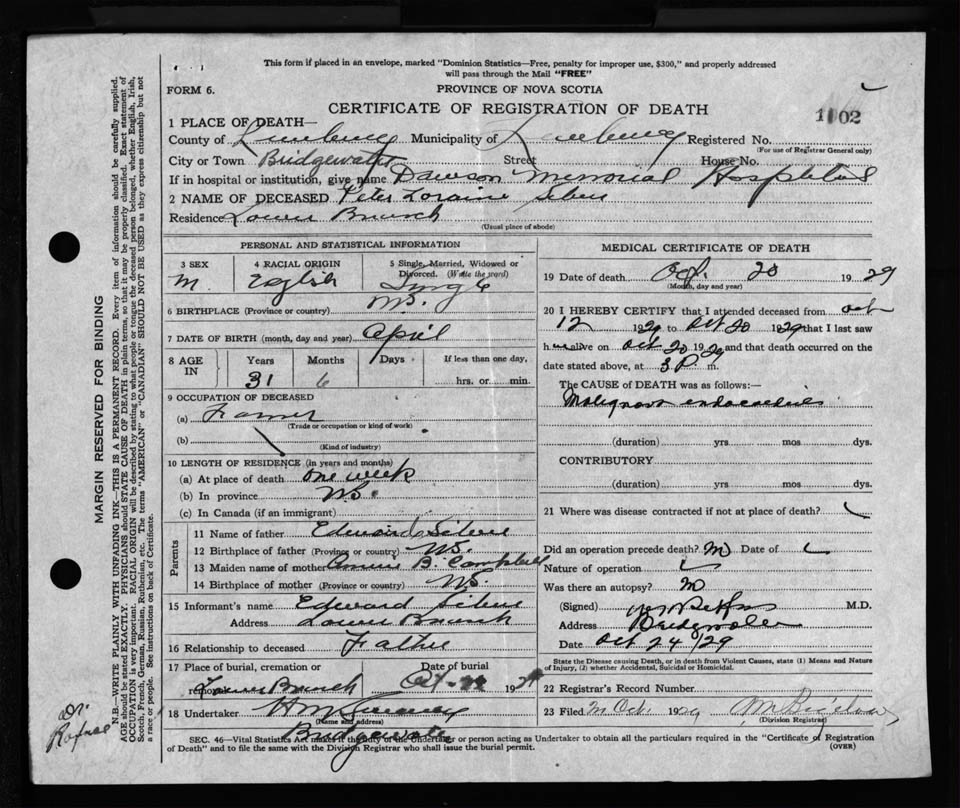 This form if placed in an envelope, marked "Dominion Statistics—Free, penalty for improper use, $300," and properly addressed
will pass through the Mail "FREE"
FORM 6.
PROVINCE OF NOVA SCOTIA
CERTIFICATE OF REGISTRATION OF DEATH
02
1 PLACE OF DEATH—
County of Lunenburg Municipality of Lunenburg Registered No.
(For use of Registrar General only)
City or Town Bridgewater Street House No.
If in hospital or institution, give name Dawson Memorial Hospital
2 NAME OF DECEASED Peter Loraine
Residence Lower Branch
(Usual place of abode)
PERSONAL AND STATISTICAL INFORMATION
3 SEX 4 RACIAL ORIGIN 5 Single, Married, Widowed or
Divorced. (Write the word)
M. English Single
6 BIRTHPLACE (Province or country) NS.
7 DATE OF BIRTH (month, day and year) April
8 AGE IN Years Months Days If less than one day,
31 6 hrs. or min.
9 OCCUPATION OF DECEASED
(a) Farmer
(Trade or occupation or kind of work)
(b)
(Kind of industry)
10 LENGTH OF RESIDENCE (in years and months)
(a) At place of death one week
(b) In province NS.
(c) In Canada (if an immigrant)
Parents
11 Name of father Edward
12 Birthplace of father (Province or country) NS.
13 Maiden name of mother Annie B. Campbell
14 Birthplace of mother (Province or country) NS.
15 Informant's name Edward
Address Lower Branch
16 Relationship to deceased Father
17 Place of burial, cremation or Date of burial
removal Lower Branch Oct. 192
18 Undertaker
(Name and address)
Bridgewater
MEDICAL CERTIFICATE OF DEATH
19 Date of death Oct. 20 1929
(Month, day and year)
20 I HEREBY CERTIFY that I attended deceased from Oct
12 1929 to Oct 20 1929 that I last saw
h alive on Oct 20 1929 and that death occurred on the
date stated above, at 3 P m.
The CAUSE OF DEATH was as follows:—
Malignant endocarditis
(duration) yrs mos dys.
CONTRIBUTORY
(duration) yrs mos dys.
21 Where was disease contracted if not at place of death?
Did an operation precede death? No Date of
Nature of operation
Was there an autopsy? No
(Signed) M.D.
Address Bridgewater
Date Oct 24/29
State the Disease causing Death, or in death from Violent Causes, state (1) Means and Nature
of Injury, (2) whether Accidental, Suicidal or Homicidal.
22 Registrar's Record Number
23 Filed Oct. 1929
(Division Registrar)
SEC. 46—Vital Statistics Act makes it the duty of the Undertaker or person acting as Undertaker to obtain all the particulars required in the "Certificate of Registration
of Death" and to file the same with the Division Registrar who shall issue the burial permit. (OVER)
MARGIN RESERVED FOR BINDING
N.B.—WRITE PLAINLY WITH UNFADING INK—THIS IS A PERMANENT RECORD. Every item of information should be carefully supplied.
AGE should be stated EXACTLY. PHYSICIANS should STATE CAUSE OF DEATH in plain terms, so that it may be properly classified. Exact statement of
OCCUPATION is very important. RACIAL ORIGIN will be described by stating to what people or tongue the deceased person belonged, whether English, Irish,
Scotch, French, German, Russian, Ruthenian, etc. The terms "AMERICAN" or "CANADIAN" SHOULD NOT BE USED as they express citizenship but not
a race or people. See instructions on back of Certificate.
Dr.